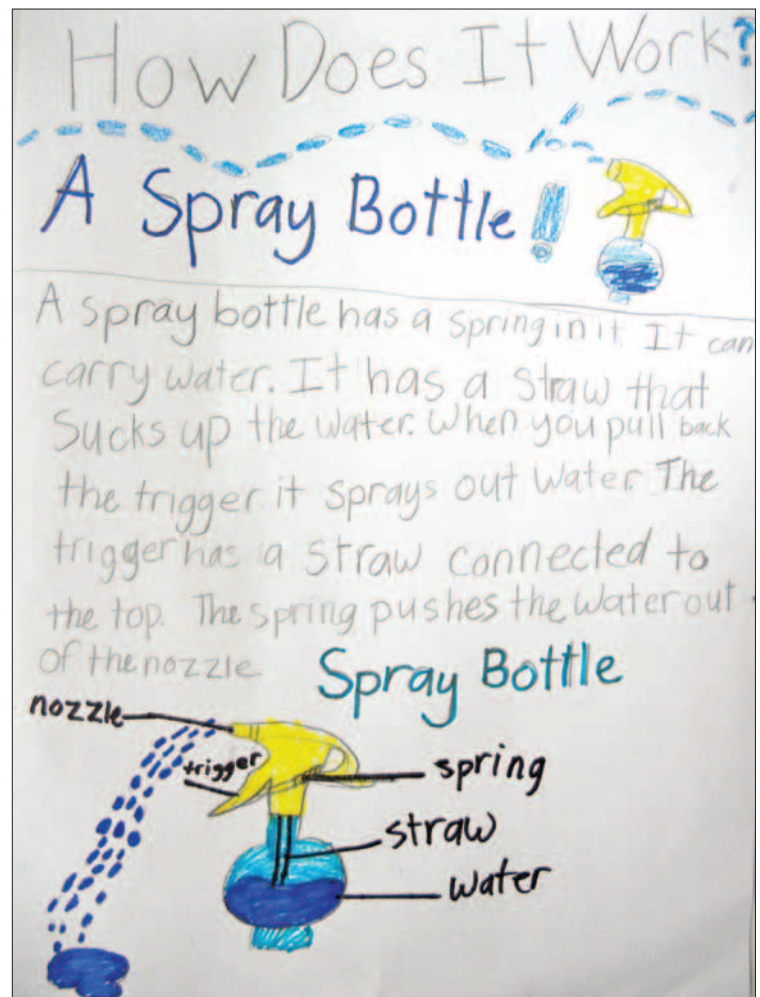 How Does It Work?
A Spray Bottle!
A spray bottle has a spring in it. It can
carry water. It has a straw that
sucks up the water. When you pull back
the trigger it sprays out water. The
trigger has a straw connected to
the top. The spring pushes the water out
of the nozzle.
Spray Bottle
nozzle
trigger
spring
straw
water